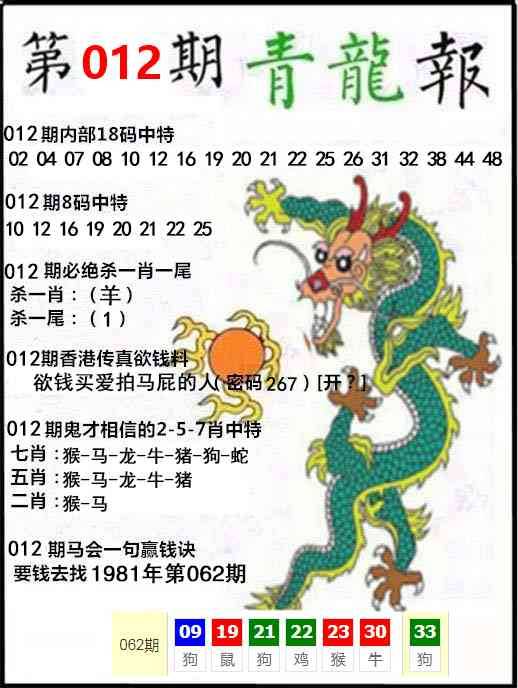 第012期青龍報
012期内部18码中特
02 04 07 08 10 12 16 19 20 21 22 25 26 31 32 38 44 48
012期8码中特
10 12 16 19 20 21 22 25
012期必绝杀一肖一尾
杀一肖：（羊）
杀一尾：（1）
012期香港传真欲钱料
欲钱买爱拍马屁的人(密码267)[开？]
012期鬼才相信的2-5-7肖中特
七肖：猴-马-龙-牛-猪-狗-蛇
五肖：猴-马-龙-牛-猪
二肖：猴-马
012期马会一句赢钱诀
要钱去找1981年第062期
062期 09 19 21 22 23 30 33
狗 鼠 狗 鸡 猴 牛 狗